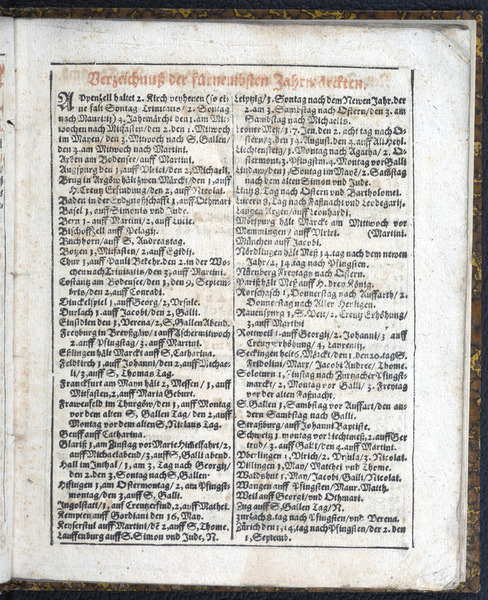 Verzeichnuß der fürnembsten Jahrmärckten.
APpenzell haltet 2. Kirchweyhenen (so ei-
ne falt Sontag Trinitatis / 2. Sontag
nach Mauritii) 4. Jahrmärckt den 1. am Mit-
wochen nach Mitfasten / den 2. den 1. Mitwoch
im Mayen / den 3. Mitwoch nach S. Gallen /
den 4. am Mitwoch nach Martini.
Arbon am Bodensee / auff Martini.
Augspurg den 1, auff Vlrici / den 2, Michaeli.
Brug in Argöw hält zwen Märckt / den 1, auff
H. Creutz Erfindung / den 2, auff Nicolai.
Baden in der Eydgnoßschafft 1, auff Othmari
Basel 1, auff Simonis und Jude.
Bern 1. auff Martini / 2, auff Lucie.
Bischoffzell auff Pelagii.
Buchhorn / auff S. Andreastag.
Botzen 1, Mitfasten / 2. auff Egidii.
Chur 1, auff Pauli Bekehr. den 2. in der Wo-
chen nach Trinitatis / den 3, auff Martini.
Costantz am Bodensee / den 1, den 9, Septem-
bris / den 2, auff Conradi.
Dinckelspiel / auff Georg / 2, Vrsule.
Durlach 1, auff Jacobi / den 2, Galli.
Einsidlen den 1, Verena / 2, S. Gallen Abend.
Freyburg in Breyßgäw / 1, auff Aschermitwoch
2. auff Pfingstag / 3. auff Martini.
Eßlingen hält Marckt auff S. Catharina.
Feldkirch 1, auff Johanni / den 2, auff Michae-
li / 3, auff S. Thomas Tag.
Franckfurt am Mayn hält 2, Messen / 1, auff
Mitfasten, 2, auff Maria Geburt.
Frawenfeld im Thurgöw / den 1, auff Montag
vor dem alten S. Gallen Tag / den 2, auff
Montag vor dem alten S. Niclaus Tag.
Genff auff Catharina.
Glarus 1, am Zinstag vor Marie Himelfahrt / 2,
auff Michaelabend / 3, auff S. Galli abend.
Hall im Inthal / 1, am 3, Tag nach Georgii /
den 2. den 3, Sontag nach S. Gallen.
Hüfingen, am Ostermontag / 2, am Pfingst-
montag / den 3, auff S. Galli.
Ingolstatt / 1, auf Creutzerfind, 2, auff Mathei.
Kempten auff Gordiani den 16, May.
Keyserstul auff Martini / de 2, auff S. Thome.
Lauffenburg auff S. Simon und Jude, N.
Leipzig / 1. Sontag nach dem Newen Jahr. der
2. am 3. Sambstag nach Ostern / den 3. am
Sambstag nach Michaelis.
den 14. August. den 4. auff All Heyl.
Liechtensteig / 1. Montag nach Agatha / 2. O-
stermont. 3. Pfingst. 4. Montag vor Galli
Lindaw / den 1, Sontag im Maye / 2. Sambstag
nach dem alten Simon und Jude.
nach Ostern und Bartholomei.
Lucern 8, Tag nach Faßnacht und Leodegarii.
Langen Argen / auff Leonhardi.
Mörspurg hält Marckt am Mittwoch vor
Memmingen / auff Vlrici. (Martini.
München auff Jacobi.
Nördlingen hält Meß 14, tag nach dem newen
Jahr / 2, 14, tag nach Pfingsten.
Nürnberg Freytags nach Ostern.
Pariß hält Meß auff H. drey König.
Rorschach 1, Donnerstag nach Auffarth / 2.
Donnerstag nach Aller Heiligen.
Ravenspurg 1, S. Veit / 2. Creutz Erhöhung /
3, auff Martini
Rottweil 1. auff Georgii / 2. Johanni / 3 auff
Creutz erhöhung / 4, Laurentij.
Seckingen hält 5, Märckt / den 1, den 20, tag S.
Fridolini / Mart / Jacobi Andree / Thome.
vor der alten Faßnacht.
S. Gallen 1, Sambstag vor Auffart / den an-
dern Sambstag nach Galli.
Straßburg / auff Johanni Baptiste.
Schweitz 1, montag vor Liechtmeß, 2, auff Ger
trud / 3, auff Galli / den 4, auff Martini.
Vberlingen 1, Vlrich / 2. Vrsula / 3, Nicolai.
Villingen 1, May / Matthei und Thome.
Waldshut 1, May / Jacobi, Galli / Nicolai.
Wangen auff Pfingsten / Maur. Matth.
Weil auff Georgi / und Othmari.
Zug auff S. Gallen Tag / N.
Zurzach 8, tag nach Pfingsten / und Verena.
Zürich den 1, 14, tag nach Pfingsten / der 2. den
1, Septemb.